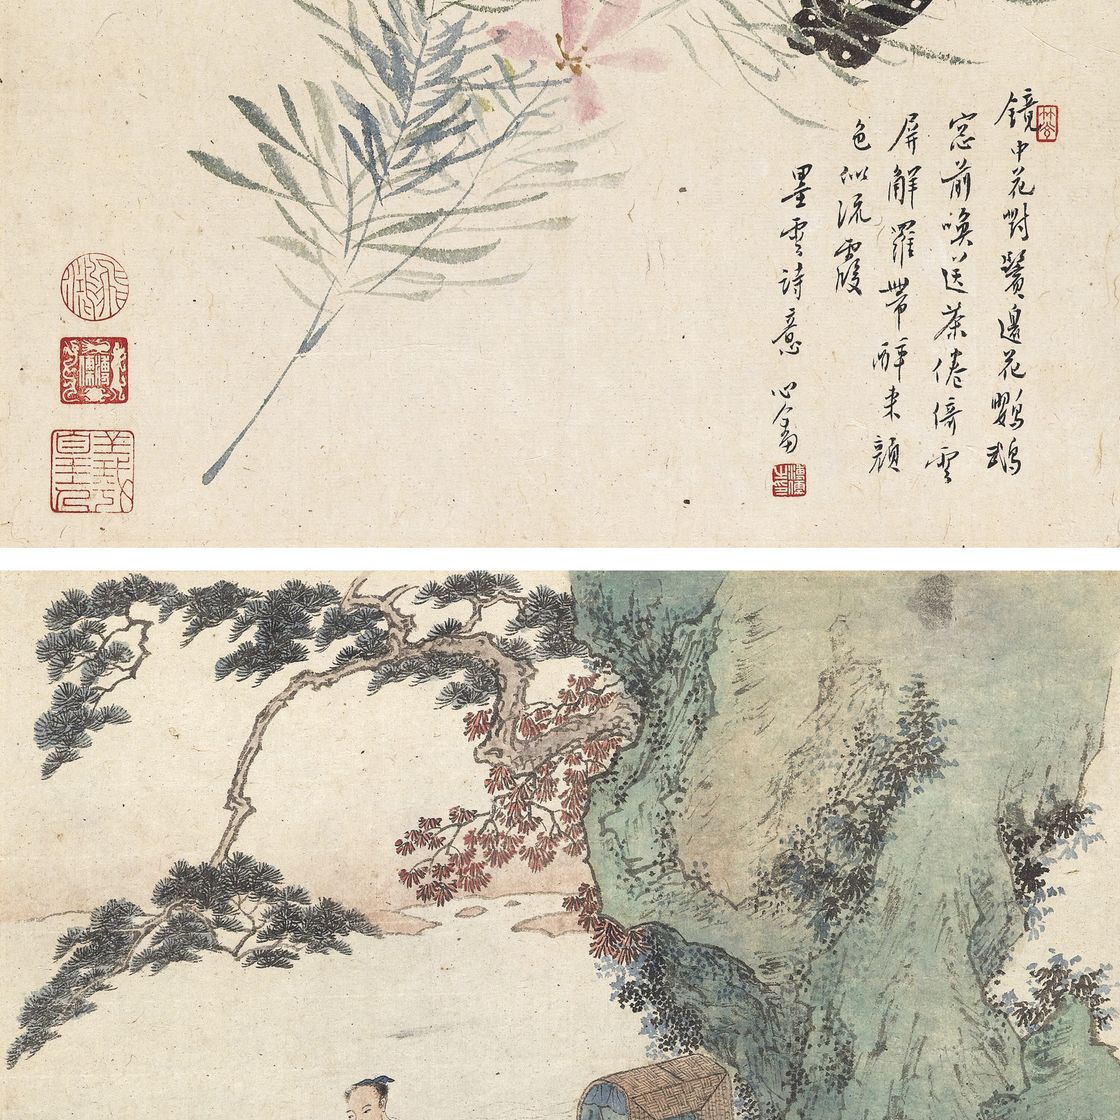 鏡中花對鬢邊花鸚鵡
窓前喚送茶倦倚雲
屏解羅帶醉來顔
色似流霞
墨雲詩意 心畬
溥儒